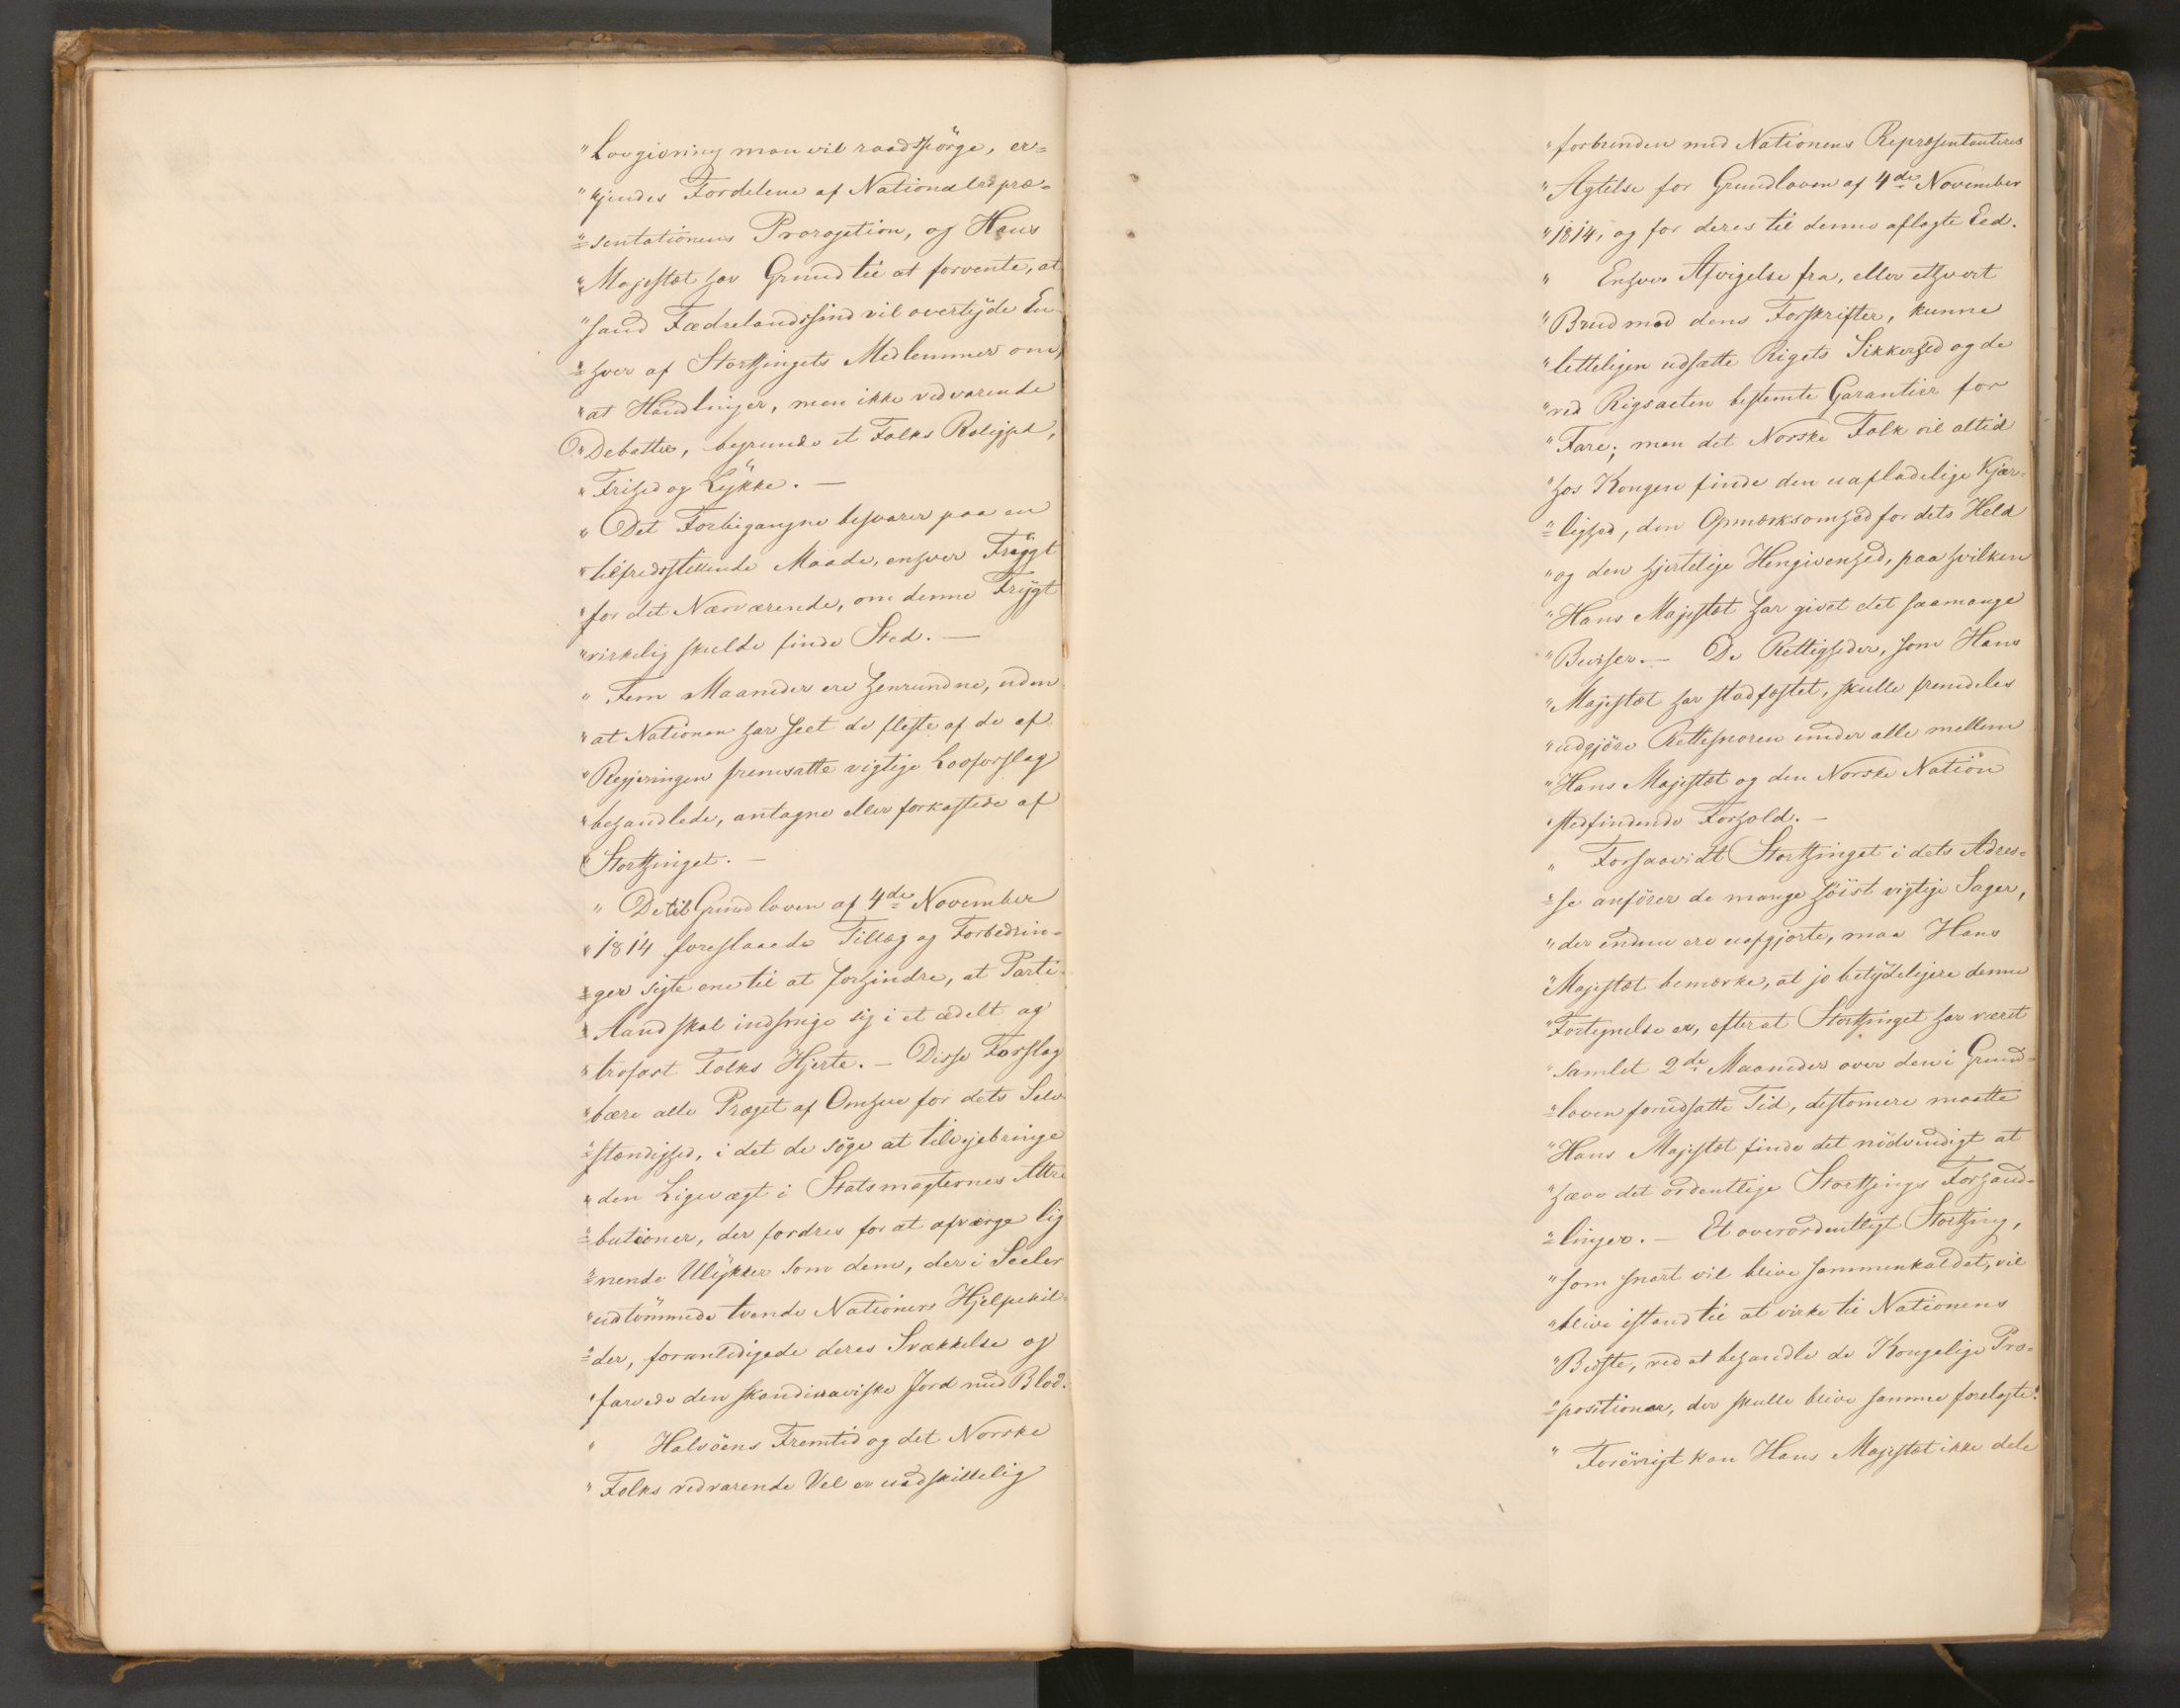 "Lovgivning man vil raadspörge, er=
"kjendes Fordelene af Nationalrepræ=
"=sentationens Prorogation, og Hans
"Majestæt har Grund til at forvente, at
"sand Fædrelandssind vil overtyde En=
"=hver af Storthingets Medlemmer om,
"at Handlinger, men ikke vedvarende
"Debatter, begrunde et Folks Rolighed,
"Frihed og Lykke. —
" Det Forbigangne besvarer paa en
"tilfredsstillende Maade, enhver Frygt
"for det Nærværende, om denne Frygt
"virkelig skulde finde Sted. —
" Fem Maaneder ere henrundne, uden
"at Nationen har seet de fleste af de af
"Regjeringen fremsatte vigtige Lovforslag
"behandlede, antagne eller forkastede af
"Storthinget. —
" De til Grundloven af 4de November
"1814 foreslaaede Tillæg og Forbedrin=
"=ger sigte ene til at forhindre, at Parti=
"=Aand skal indsnige sig i et ædelt og
"trofast Folks Hjerte. — Disse Forslag
"bære alle Præget af Omhue for dets Selv=
"=stændighed, i det de söge at tilvejebringe
"den Ligevægt i Statsmagternes Attri
"=butioner, der fordres for at afværge lig
"=nende Ulykker som dem, der i Secler
"udtömmede tvende Nationers Hjelpekil=
"=der, foranledigede deres Svækkelse og
"farvede den skandinaviske Jord med Blod.
" Halvöens Fremtid og det Norske
"Folks vedvarende Vel er uadskillelig
"forbunden med Nationens Repræsentanteres
"Agtelse for Grundloven af 4de November
"1814, og for deres til denne aflagte Eed.
" Enhver Afvigelse fra, eller ethvert
"Brud mod dens Forskrifter, kunne
"letteligen udsætte Rigets Sikkerhed og de
"ved Rigsacten bestemte Garantier for
"Fare; men det Norske Folk vil altid
"hos Kongen finde den uafladelige Kjær=
"=lighed, den Opmærksomhed for dets Held
"og den hjertelige Hengivenhed, paa hvilken
"Hans Majestæt har givet det saamange
"Beviser. — De Rettigheder, som Hans
"Majestæt har stadfæstet, skulle fremdeles
"udgjöre Rettesnoren under alle mellem
"Hans Majestæt og den Norske Nation
"stedfindende Forhold. —
" Forsaavidt Storthinget i dets Adres=
"=se anförer de mange höist vigtige Sager,
"der endnu ere uafgjorte, maa Hans
"Majestæt bemærke, at jo betydeligere denne
"Fortegnelse er, efterat Storthinget har været
"samlet 2de Maaneder over den i Grund=
"=loven forudsatte Tid, destomere maatte
"Hans Majestæt finde det nödvendigt at
"hæve det ordentlige Storthings Forhand=
"=linger. — Et overordentligt Storthing,
"som snart vil blive sammenkaldet, vil
"blive istand til at virke til Nationens
"Bedste, ved at behandle de Kongelige Pro=
"=positioner, der skulle blive samme forelagte.
" Forövrigt kan Hans Majestæt ikke dele